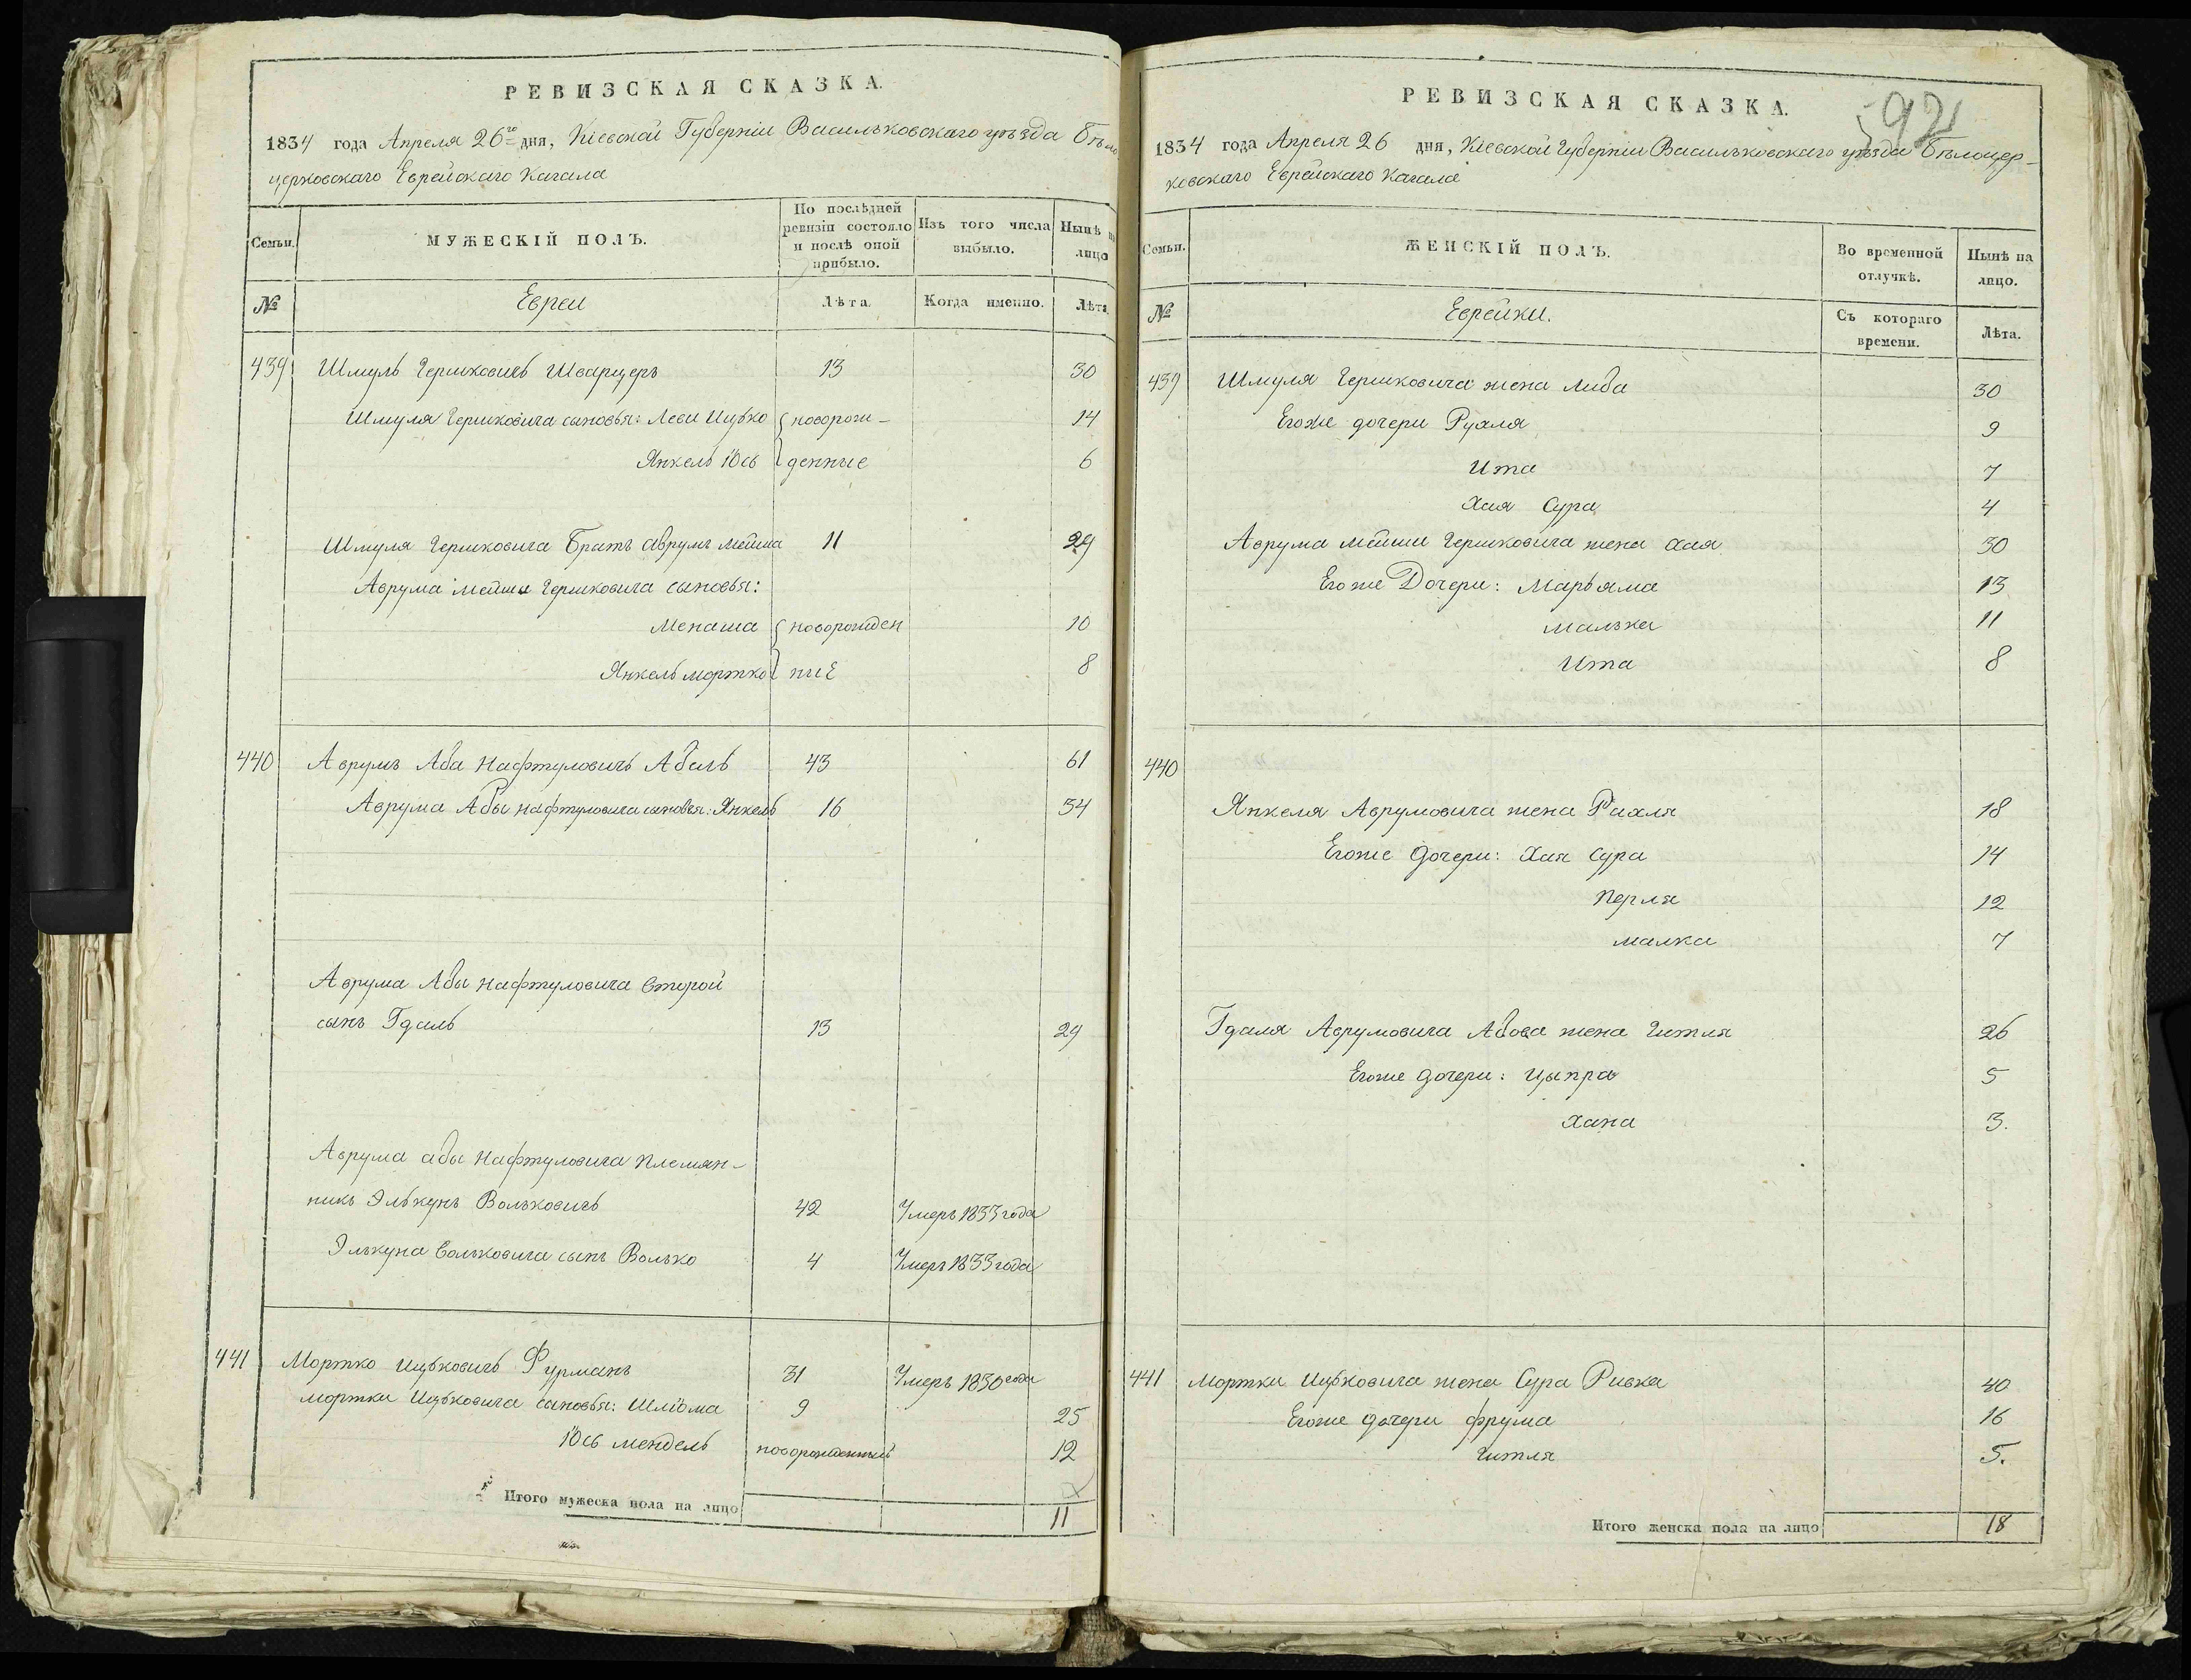 РЕВИЗСКАЯ СКАЗКА.
1834 года Апреля 26го дня, Кіевской Губерніи Васильковскаго уѣзда Бѣло
церковскаго Еврейскаго Кагала
Семьи.
МУЖЕСКІЙ ПОЛЪ.
По послѣдней ревизіи состояло и послѣ оной прибыло.
Изъ того числа выбыло.
Нынѣ на лицо
№
Евреи
Лѣта.
Когда именно.
Лѣта.
439 Шмуль Гершковичь Шварцеръ 13 30
Шмуля Гершковича сыновья: Леви Ицько новорож- 14
Янкель Іось денные 6
Шмуля Гершковича Братъ Аврумъ Мейша 11 29
Аврума Мейши Гершковича сыновья:
Менаша новорожден 10
Янкель Мортко ные 8
440 Аврумъ Аба Нафтуловичь Абель 43 61
Аврума Абы Нафтуловича сыновья: Янкель 16 34
Аврума Абы Нафтуловича второй
сынъ Гдаль 13 29
Аврума абы Нафтуловича племян-
никъ Элькунъ Вольковичь 42 Умеръ 1833 года
Элькуна Вольковича сынъ Волько 4 Умеръ 1833 года
441 Мортко Ицьковичь Фурманъ 31 Умеръ 1830 года
Мортки Ицьковича сыновья: Шліома 9 25
Іось Мендель новорожденный 12
Итого мужеска пола на лицо 11
РЕВИЗСКАЯ СКАЗКА.
92
1834 года Апреля 26 дня, Кіевской Губерніи Васильковскаго уѣзда Бѣлоцер-
ковскаго Еврейскаго Кагала
Семьи.
ЖЕНСКІЙ ПОЛЪ.
Во временной отлучкѣ.
Нынѣ на лицо.
№
Еврейки.
Съ котораго времени.
Лѣта.
439 Шмуля Гершковича жена Либа 30
Егоже дочери Рухля 9
Ита 7
Хая Сура 4
Аврума Мейши Гершковича жена Хая 30
Егоже Дочери: Марьяма 13
Малька 11
Ита 8
440
Янкеля Аврумовича жена Рахля 18
Егоже дочери: Хая Сура 14
Перля 12
Малка 7
Гдаля Аврумовича Абова жена Гитля 26
Егоже дочери: Цыпра 5
Хана 3.
441 Мортки Ицьковича жена Сура Ривка 40
Егоже дочери Фрума 16
Гитля 5.
Итого женска пола на лицо 18